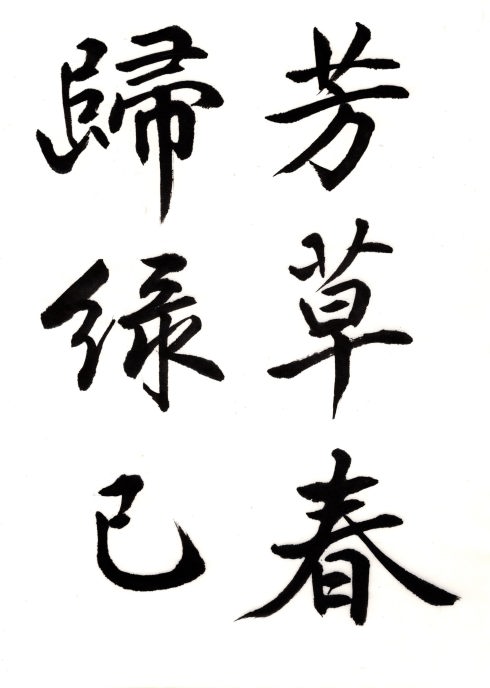 芳草春
歸綠已